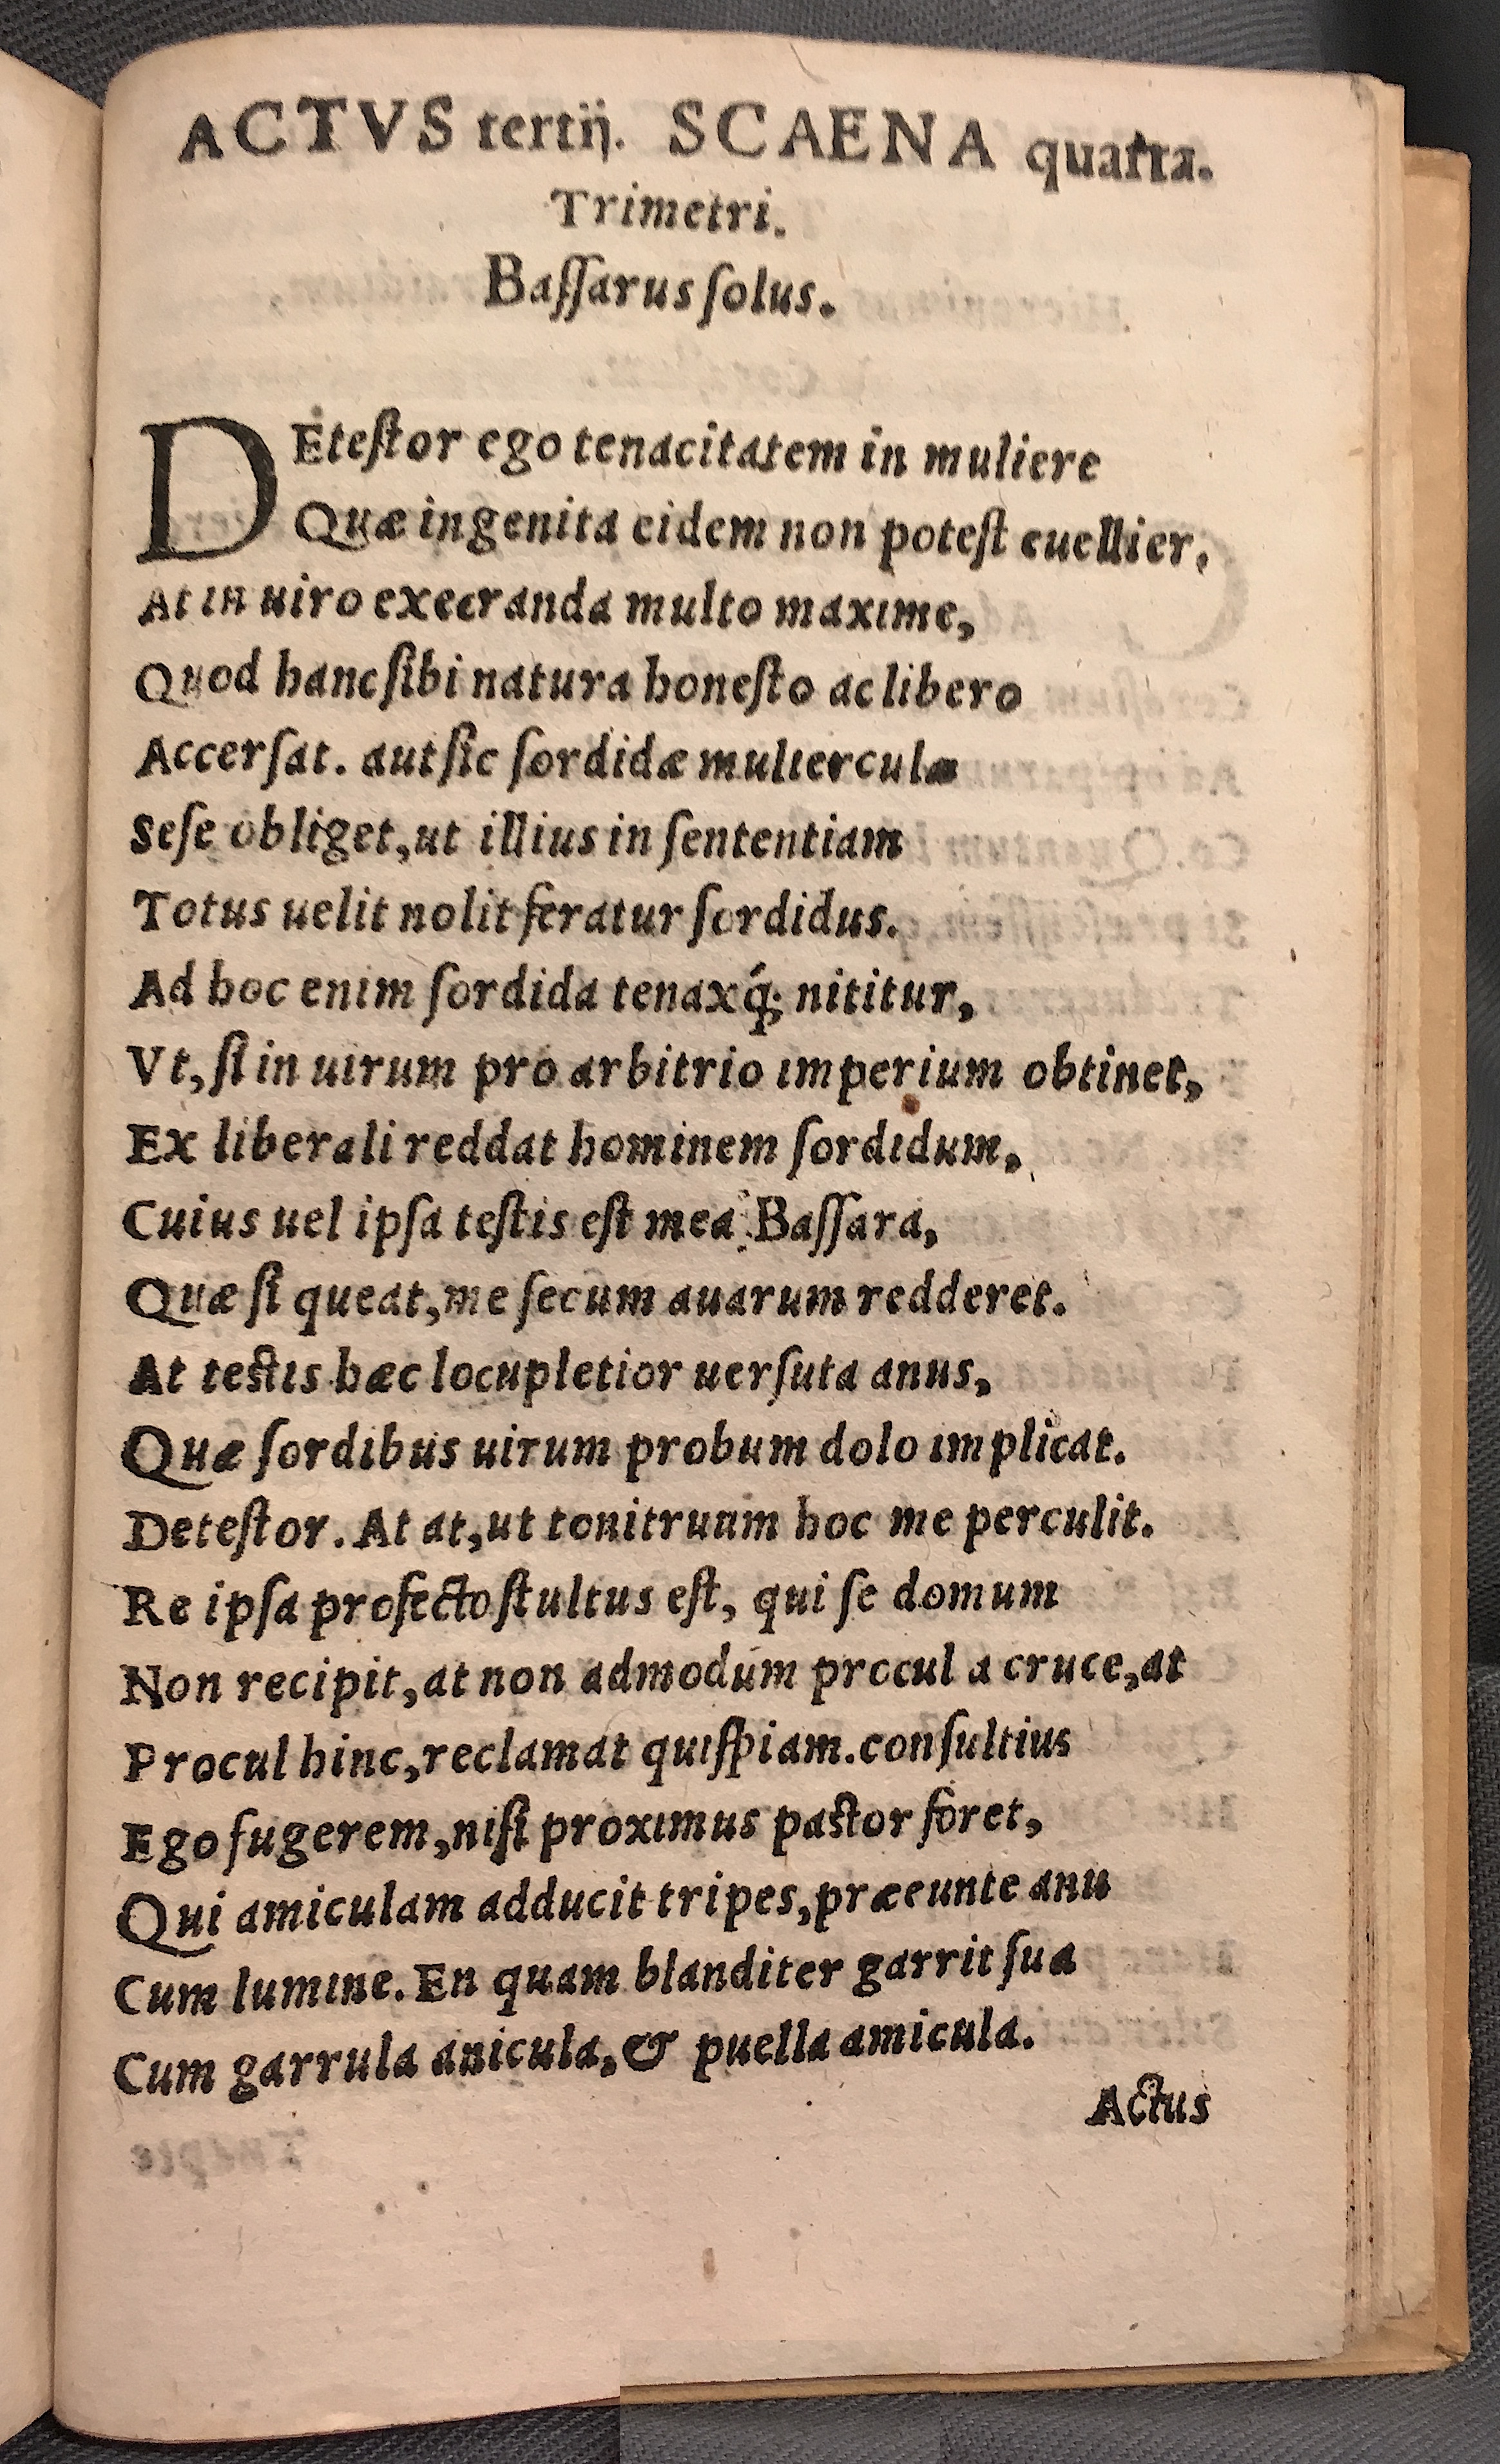 ACTVS tertij. SCAENA quarta.
Trimetri.
Baſſarus ſolus.
DEteſtor ego tenacitatem in muliere
Quæ ingenita eidem non poteſt euellier,
At in uiro execranda multo maxime,
Quod hanc ſibi natura honeſto ac libero
Accerſat. aut ſic ſordidæ mulierculæ
Seſe obliget, ut illius in ſententiam
Totus uelit nolit feratur ſordidus.
Ad hoc enim ſordida tenaxq́; nititur,
Vt, ſi in uirum pro arbitrio imperium obtinet,
Ex liberali reddat hominem ſordidum,
Cuius uel ipſa teſtis eſt mea Baſſara,
Quæ ſi queat, me ſecum auarum redderet.
At teſtis hæc locupletior uerſuta anus,
Quæ ſordibus uirum probum dolo implicat.
Deteſtor. At at, ut tonitruum hoc me perculit.
Re ipſa profecto ſtultus eſt, qui ſe domum
Non recipit, at non admodum procul a cruce, at
Procul hinc, reclamat quiſpiam. conſultius
Ego fugerem, niſi proximus paſtor foret,
Qui amiculam adducit tripes, præeunte anu
Cum lumine. En quam blanditer garrit ſua
Cum garrula anicula, & puella amicula.
Actus